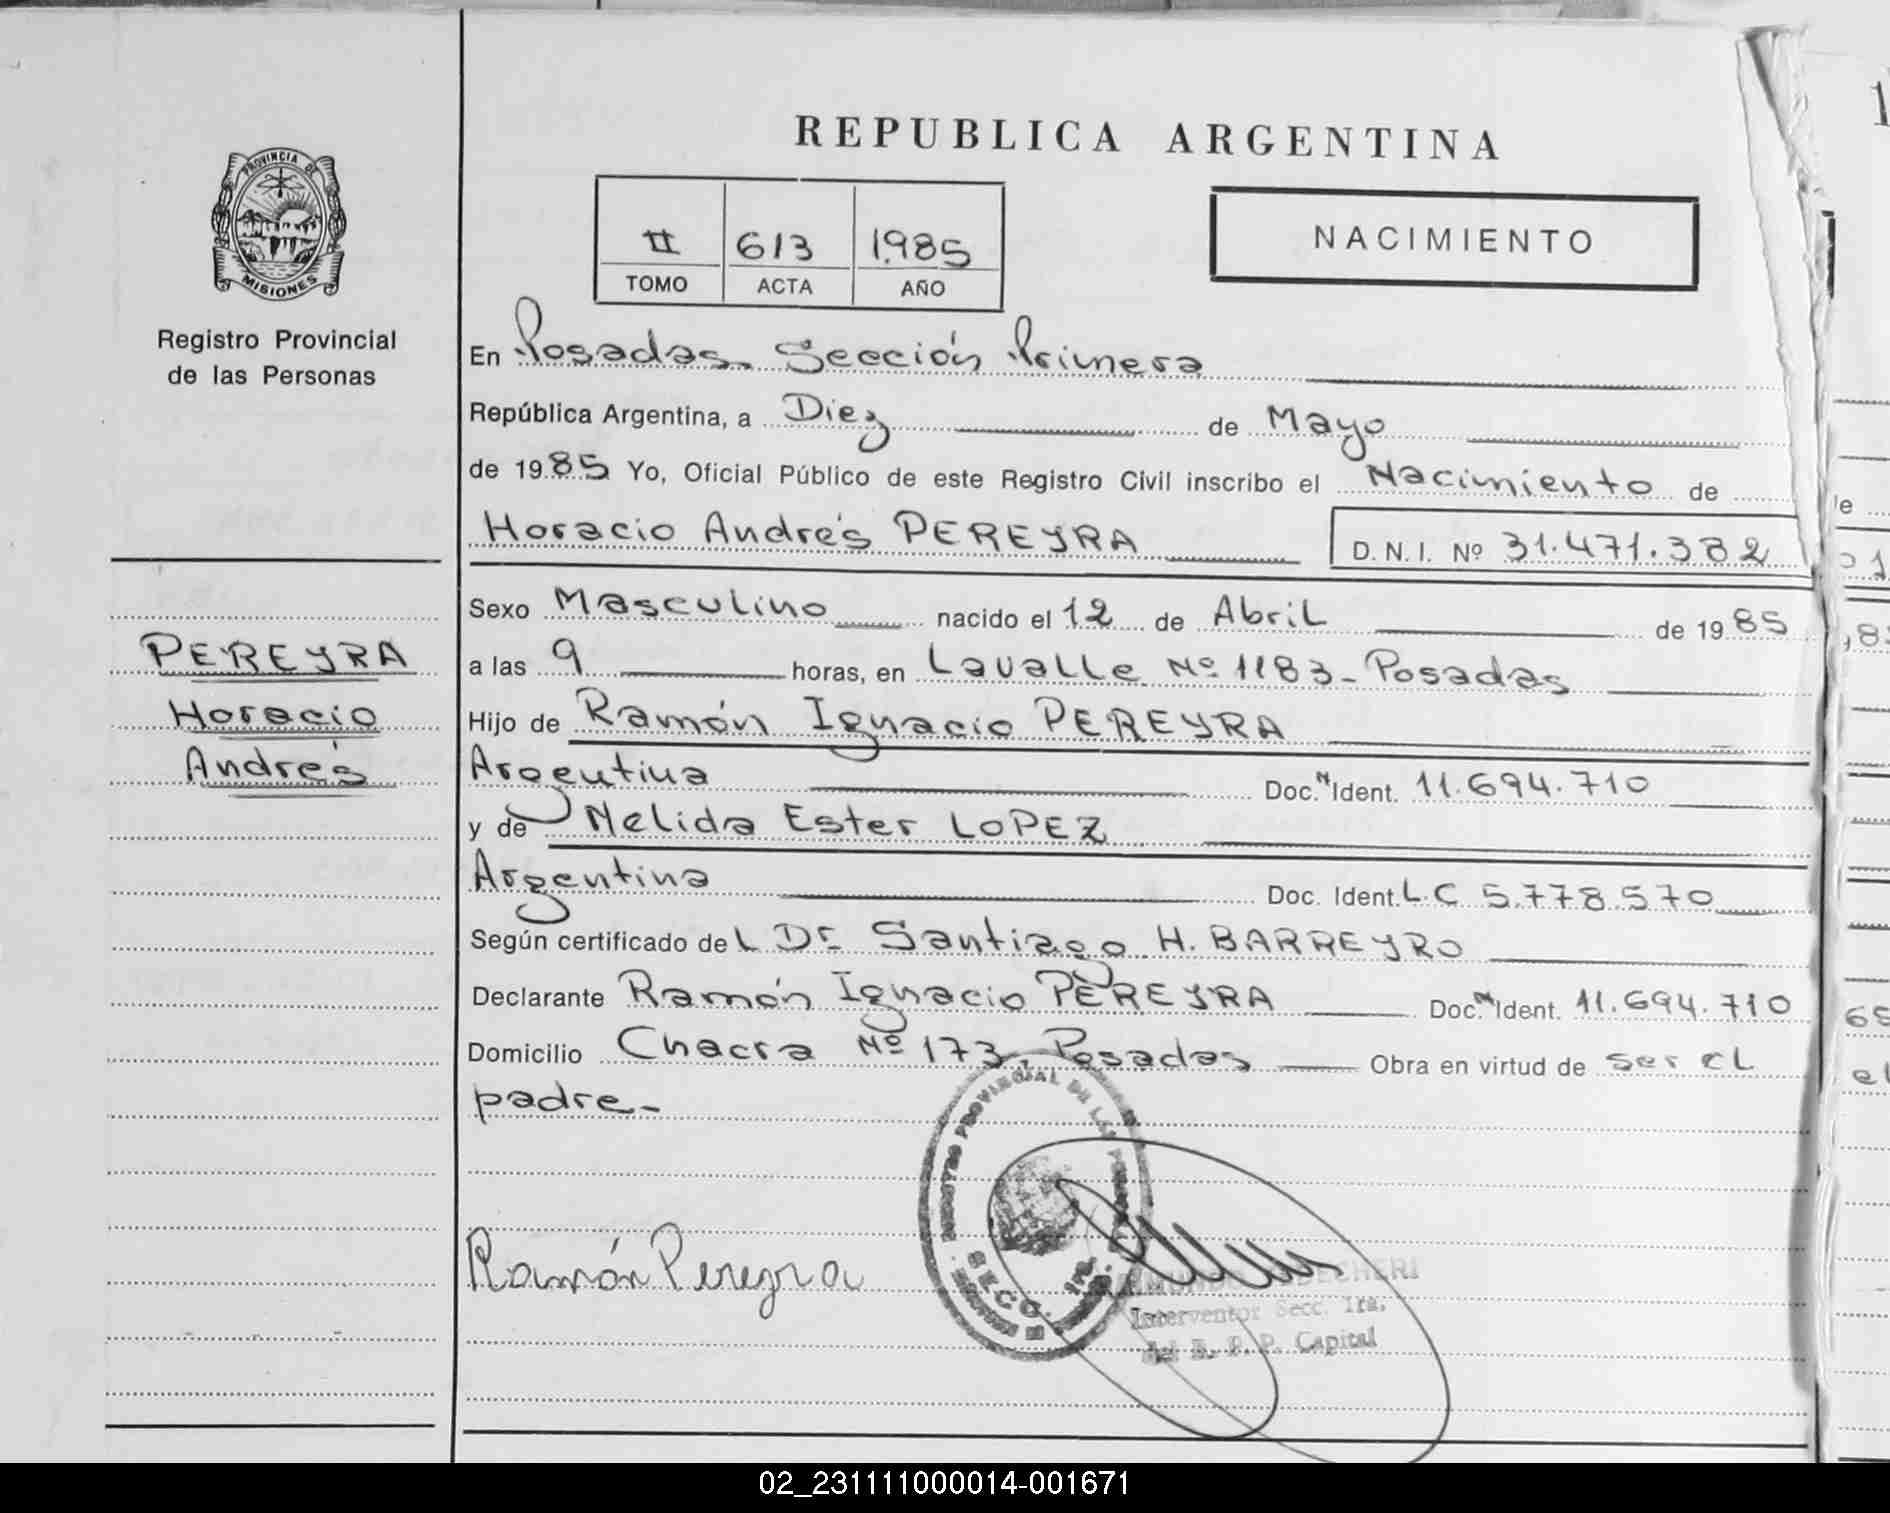 REPUBLICA ARGENTINA
PROVINCIA DE
MISIONES
Registro Provincial
de las Personas
II 613 1.985
TOMO ACTA AÑO
NACIMIENTO
En Posadas. Sección Primera
República Argentina, a Diez de Mayo
de 1985 Yo, Oficial Público de este Registro Civil inscribo el Nacimiento de
Horacio Andrés PEREYRA D.N.I. Nº 31.471.382
Sexo Masculino nacido el 12 de Abril de 1985
a las 9 horas, en Lavalle Nº 1183 - Posadas
Hijo de Ramón Ignacio PEREYRA
Argentina Doc. N Ident. 11.694.710
y de Nelida Ester LOPEZ
Argentina Doc. Ident. L.C 5.778.570
Según certificado del Dr. Santiago H. BARREYRO
Declarante Ramón Ignacio PEREYRA Doc. N Ident. 11.694.710
Domicilio Chacra Nº 173, Posadas Obra en virtud de ser el
padre -
PEREYRA
Horacio
Andrés
Ramón Pereyra
REGISTRO PROVINCIAL DE LAS PERSONAS
SECC. 1ra.
Interventor Secc. 1ra.
del R. P. P. Capital
02_231111000014-001671